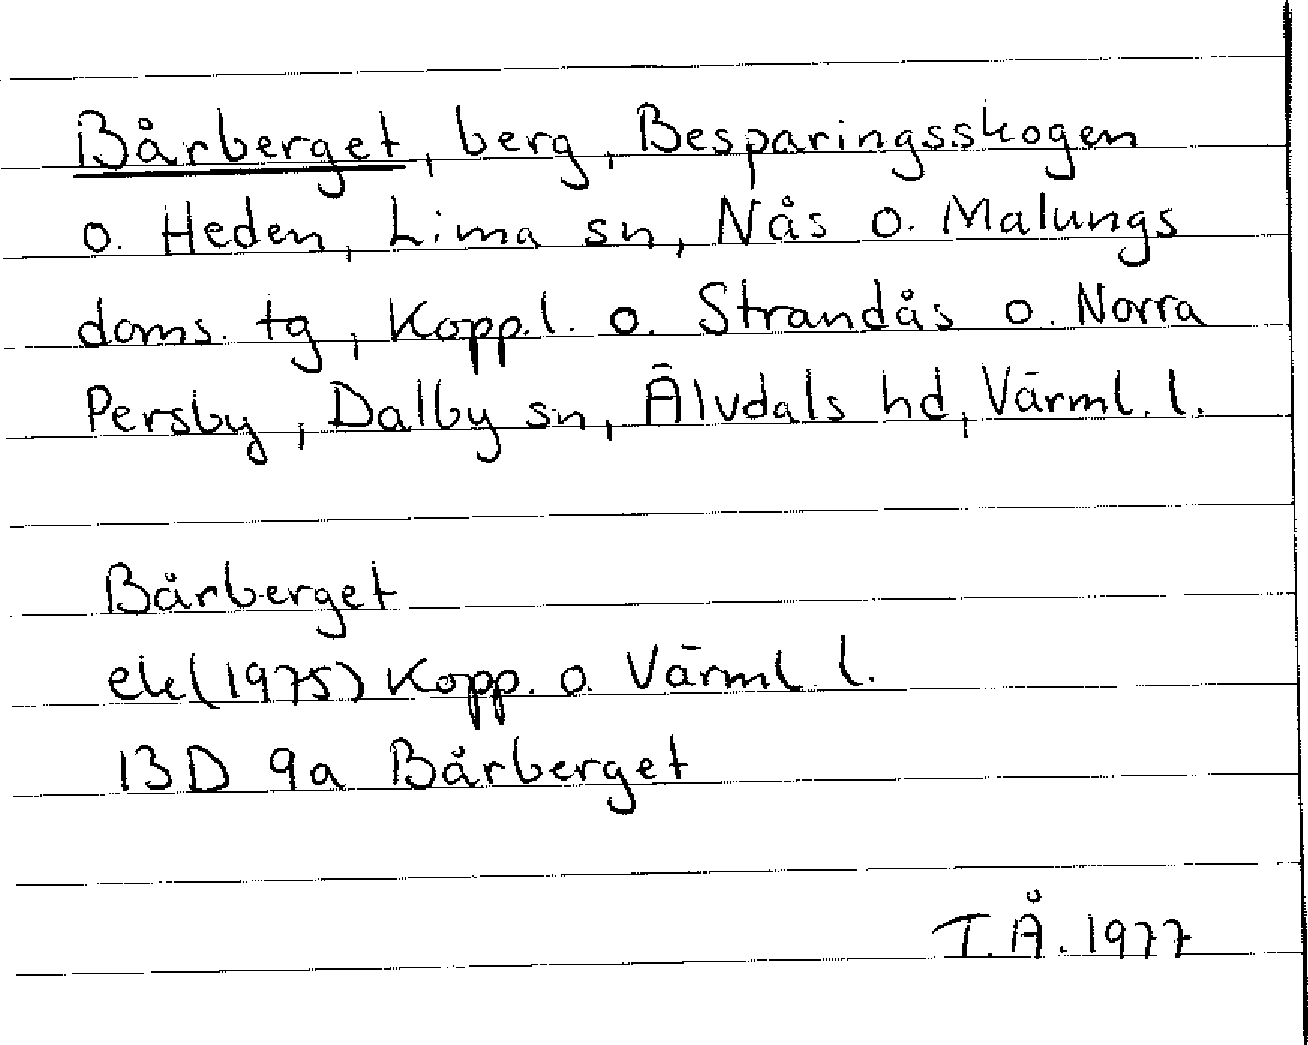 Bårberget, berg, Besparingsskogen
o. Heden, Lima sn, Nås o. Malungs
doms. tg, Kopp.l. o. Strandås o. Norra
Persby, Dalby sn, Älvdals hd, Värml. l.
Bårberget
ek(1975) Kopp. o. Värml. l.
13D 9a Bårberget
T.Å. 1977